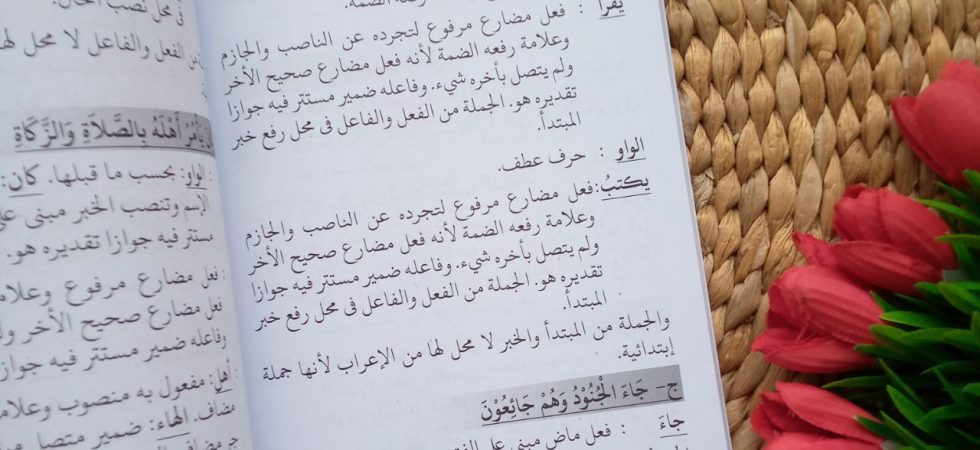 يقرأ : فعل مضارع مرفوع لتجرده عن الناصب والجازم
وعلامة رفعه الضمة لأنه فعل مضارع صحيح الأخر
ولم يتصل بأخره شيء. وفاعله ضمير مستتر فيه جوازا
تقديره هو. الجملة من الفعل والفاعل فى محل رفع خبر
المبتدأ.
الواو : حرف عطف.
يكتبُ: فعل مضارع مرفوع لتجرده عن الناصب والجازم
وعلامة رفعه الضمة لأنه فعل مضارع صحيح الأخر
ولم يتصل بأخره شيء. وفاعله ضمير مستتر فيه جوازا
تقديره هو. الجملة من الفعل والفاعل فى محل رفع خبر
المبتدأ.
والجملة من المبتدأ والخبر لا محل لها من الإعراب لأنها جملة
إبتدائية.
ج- جَاءَ الْجُنُوْدُ وَهُمْ جَائِعُوْنَ
جاءَ : فعل ماض مبنى على
فى محل نصب الحال.
من الفعل والفاعل لا محل لها
يَأْمُرُ أَهْلَهُ بِالصَّلَاةِ وَالزَّكَاةِ
: الواو: بحسب ما قبلها. كان:
الإسم وتنصب الخبر مبنى
مستتر فيه جوازا تقديره هو.
: فعل مضارع مرفوع وعلامة
فعل مضارع صحيح الأخر
وفاعله ضمير مستتر فيه جوازا
: أهل: مفعول به منصوب وعلامة
مضاف. الهاء: ضمير متصل